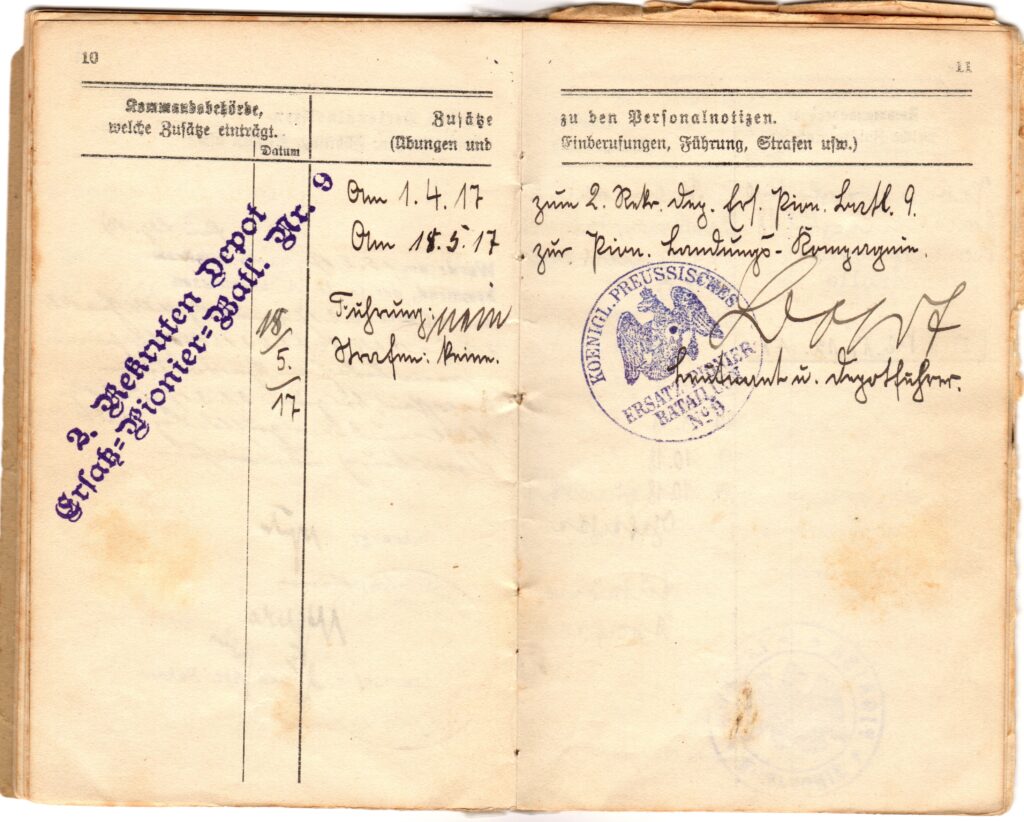 10
Kommandobehörde,
welche Zusätze einträgt.
Datum
Zusätze
(Übungen und
2. Rekruten Depot
Ersatz=Pionier=Batl. Nr. 9
18/5./17
Am 1.4.17
Am 18.5.17
Führung:
Strafen: keine.
11
zu den Personalnotizen.
Einberufungen, Führung, Strafen usw.)
zum 2. Rekr. Dep. Ers. Pion. Batl. 9.
zur Pion. Landungs-Kompagnie.
KOENIGL. PREUSSISCHES
ERSATZ PIONIER-
BATAILLON
No 9
Leutnant u. Depotführer.